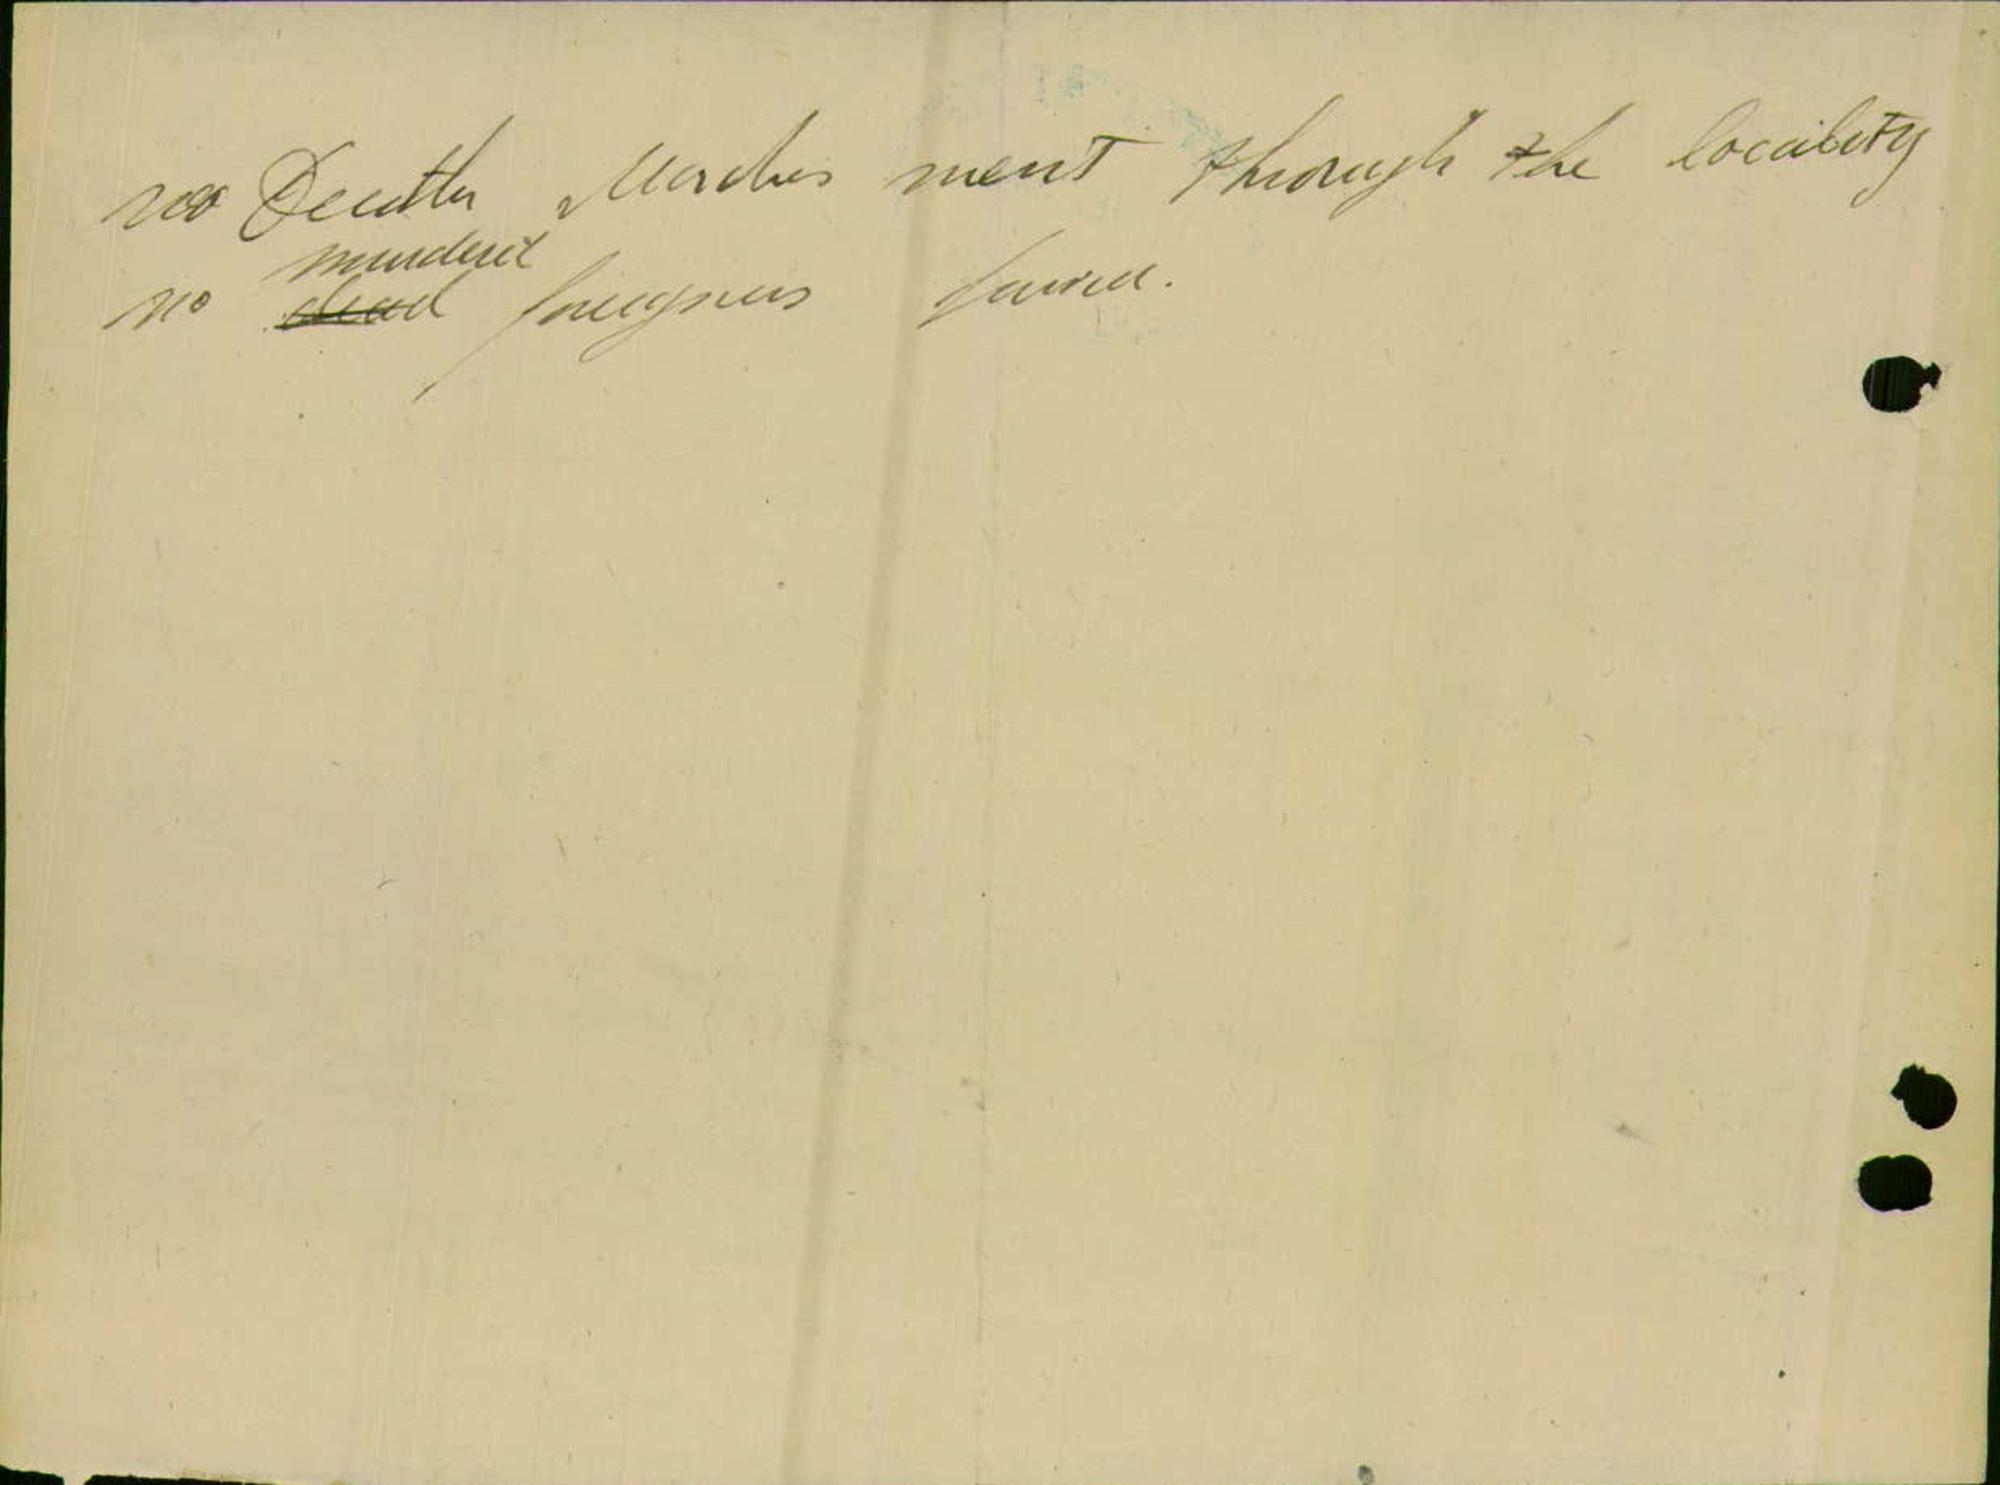 no Death Marches went through the locality
murdered
no dead foreigners found.